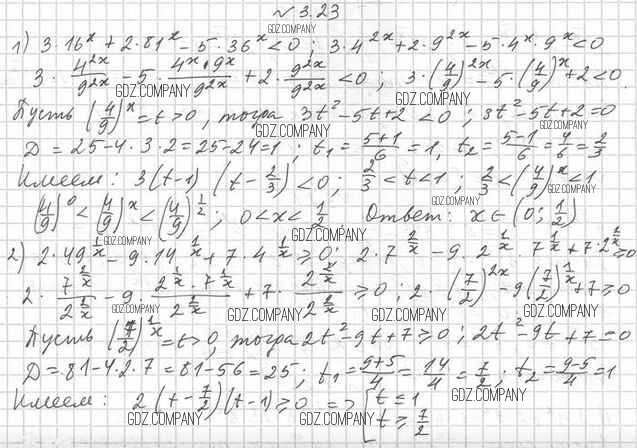 № 3.23
1) 3·16^x + 2·81^x − 5·36^x < 0 ; 3·4^{2x} + 2·9^{2x} − 5·4^x·9^x < 0
3·4^{2x}/9^{2x} − 5·4^x·9^x/9^{2x} + 2·9^{2x}/9^{2x} < 0 ; 3·(4/9)^{2x} − 5·(4/9)^x + 2 < 0.
Пусть (4/9)^x = t > 0, тогда 3t² − 5t + 2 < 0 ; 3t² − 5t + 2 = 0
D = 25 − 4·3·2 = 25 − 24 = 1 ; t₁ = (5+1)/6 = 1, t₂ = (5−1)/6 = 4/6 = 2/3
Имеем: 3(t−1)(t − 2/3) < 0 ; 2/3 < t < 1 ; 2/3 < (4/9)^x < 1
(4/9)^0 < (4/9)^x < (4/9)^{1/2} ; 0 < x < 1/2 Ответ: x ∈ (0; 1/2)
2) 2·49^{1/x} − 9·14^{1/x} + 7·4^{1/x} ≥ 0 ; 2·7^{2/x} − 9·2^{1/x}·7^{1/x} + 7·2^{2/x} ≥ 0
2·7^{2/x}/2^{2/x} − 9·2^{1/x}·7^{1/x}/2^{2/x} + 7·2^{2/x}/2^{2/x} ≥ 0 ; 2·(7/2)^{2x} − 9(7/2)^{1/x} + 7 ≥ 0
Пусть (7/2)^{1/x} = t > 0, тогда 2t² − 9t + 7 ≥ 0 ; 2t² − 9t + 7 = 0
D = 81 − 4·2·7 = 81 − 56 = 25 ; t₁ = (9+5)/4 = 14/4 = 7/2 ; t₂ = (9−5)/4 = 1
Имеем: 2(t − 7/2)(t − 1) ≥ 0 => [t ≤ 1
t ≥ 7/2
GDZ.COMPANY